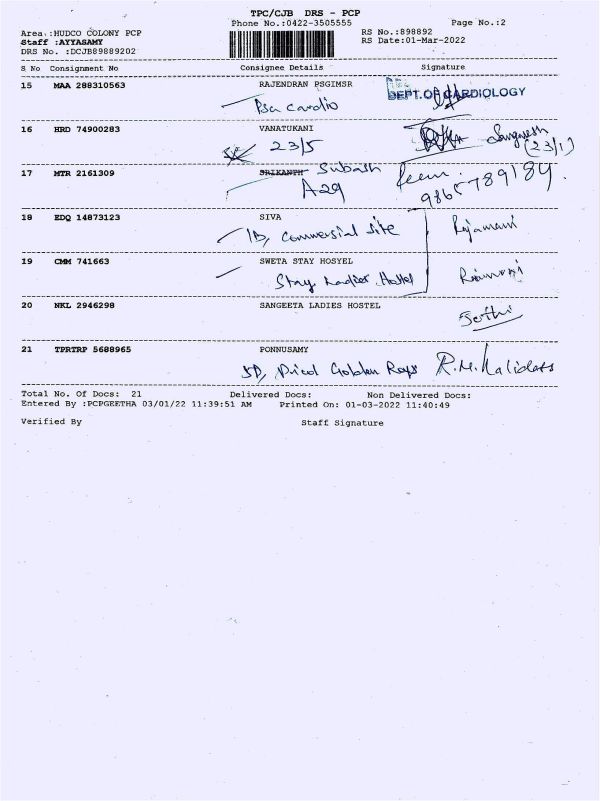 TPC/CJB DRS - PCP
Phone No.:0422-3505555
Page No.:2
Area.:HUDCO COLONY PCP
RS No.:898892
Staff :AYYASAMY
RS Date:01-Mar-2022
DRS No. :DCJB89889202
S No Consignment No Consignee Details Signature
15 MAA 288310563 RAJENDRAN PSGIMSR DEPT.OF CARDIOLOGY
Psg Cardio
16 HRD 74900283 VANATUKANI
23/5 Sangeeth
(23/1)
17 MTR 2161309 SRIKANTH Subash
A29 9865789184.
18 EDQ 14873123 SIVA
1D, Commersial site Rajamani
19 CMM 741663 SWETA STAY HOSYEL
Stay Ladies Hostel Rajamani
20 NKL 2946298 SANGEETA LADIES HOSTEL
Sethi
21 TPRTRP 5688965 PONNUSAMY
5D, Pricol Golden Rays R.M.Kalidass
Total No. Of Docs: 21 Delivered Docs: Non Delivered Docs:
Entered By :PCPGEETHA 03/01/22 11:39:51 AM Printed On: 01-03-2022 11:40:49
Verified By Staff Signature